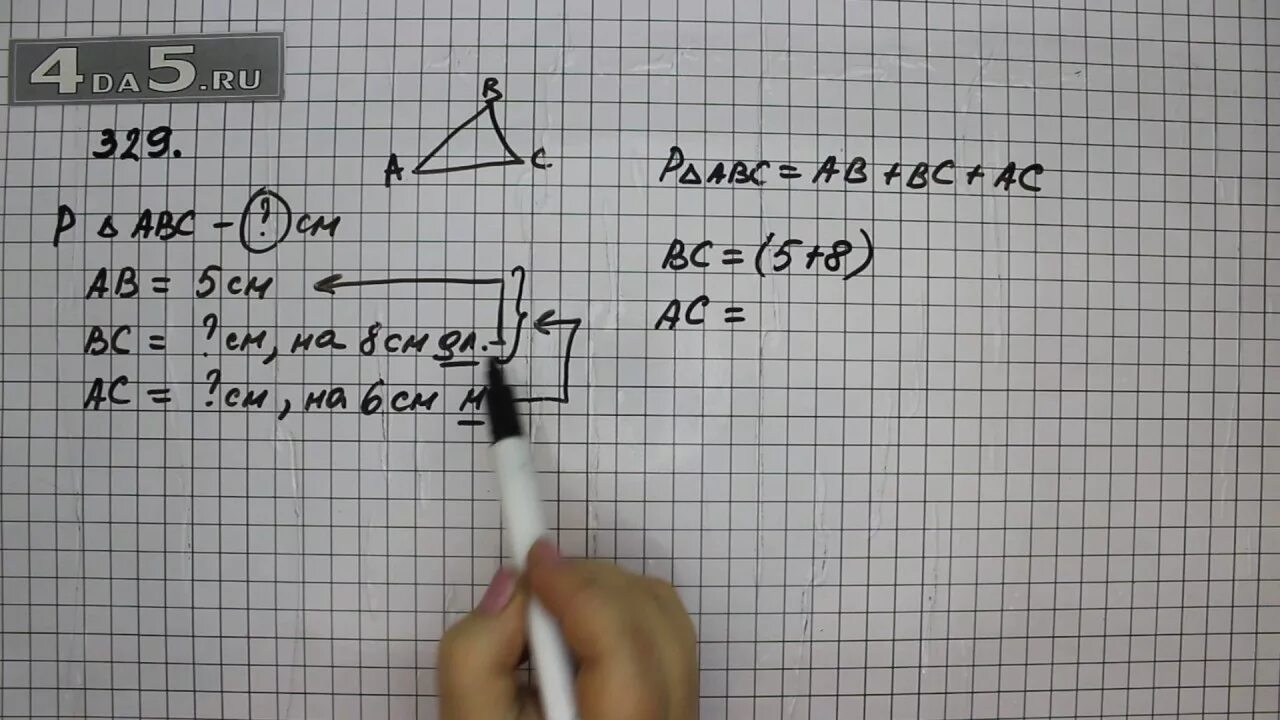 4DA5.RU
329.
B
A
C
P △ ABC - ? см
AB = 5 см
BC = ? см, на 8 см дл.
AC = ? см, на 6 см м
P△ABC = AB + BC + AC
BC = (5+8)
AC =